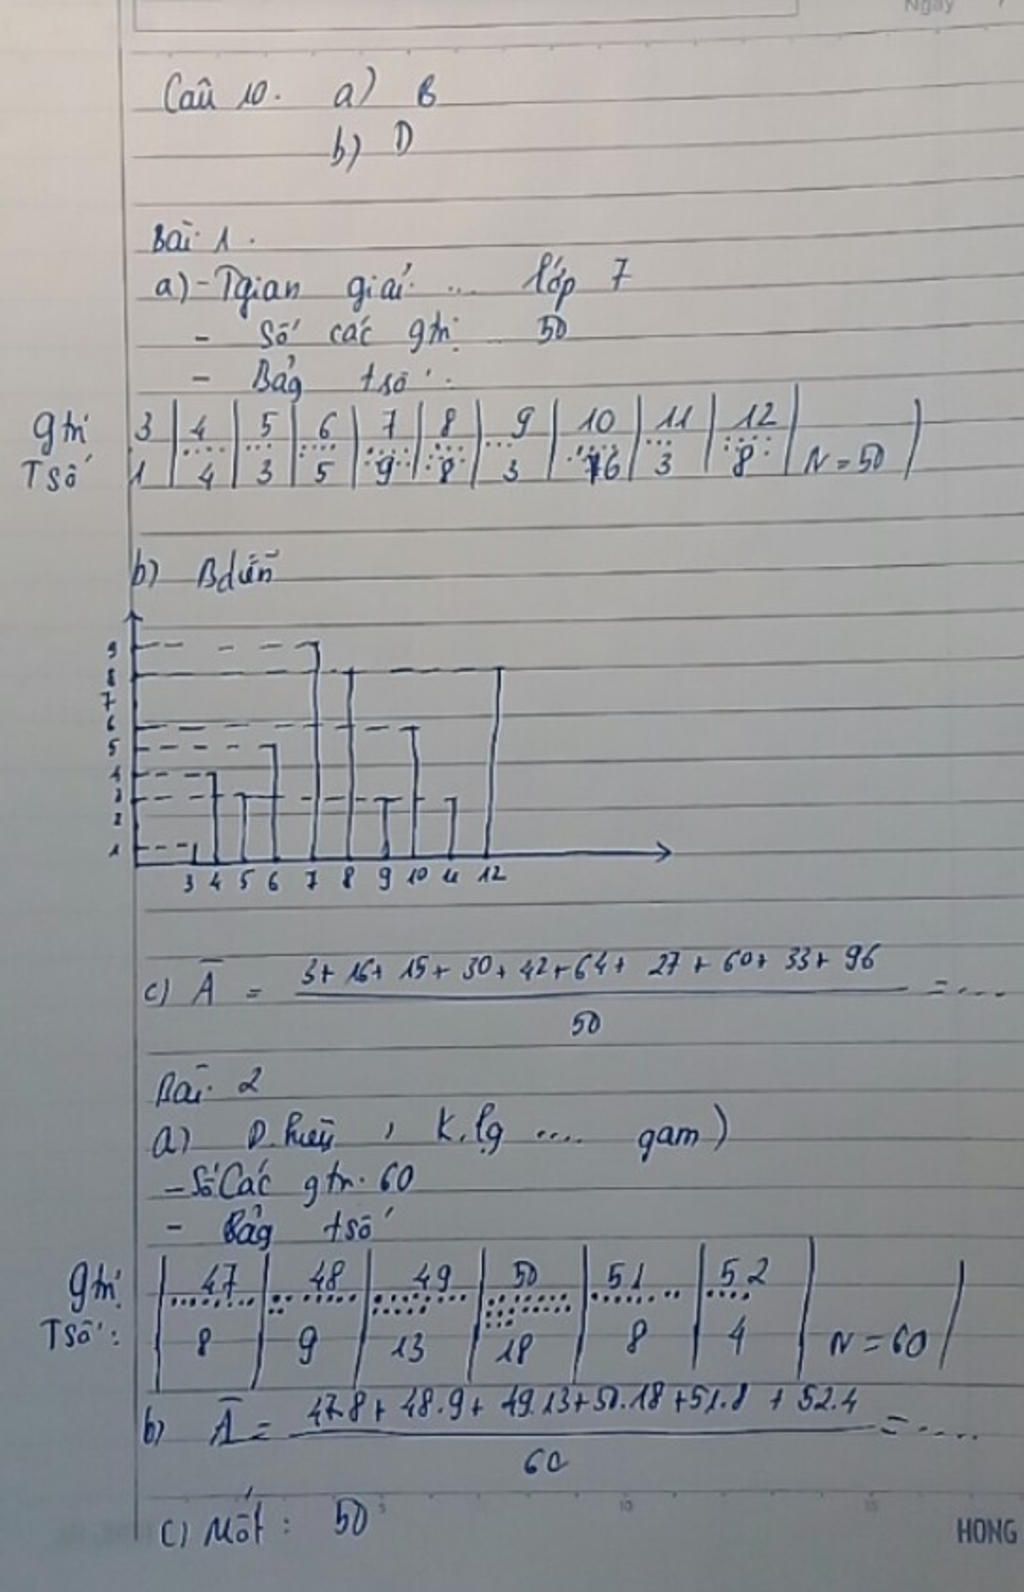 Ngày
Câu 10. a) B
b) D
Bài 1.
a) - Tgian giải ... lớp 7
- Số các gtrị .. 50
- Bảg tsố:
gtrị 3 4 5 6 7 8 9 10 11 12
Tsố 1 4 3 5 9 8 3 6 3 8 N = 50
b) Bdiễn
9
8
7
6
5
4
3
2
1
3 4 5 6 7 8 9 10 11 12
c) A = 3 + 16 + 15 + 30 + 42 + 64 + 27 + 60 + 33 + 96 = ....
50
Bài 2
a) D.hiệu , K.lg .... gam)
- Số Các gtrị. 60
- Bảg tsố
gtrị 47 48 49 50 51 52
Tsố: 8 9 13 18 8 4 N = 60
b) A = 47.8 + 48.9 + 49.13 + 50.18 + 51.8 + 52.4 = ....
60
5 10 15
c) Mốt : 50
HONG